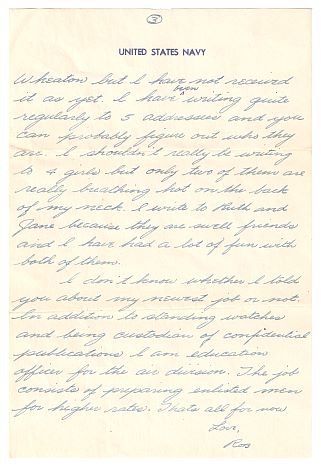 3
UNITED STATES NAVY
Wheaton but I have not received
it as yet. I have been writing quite
regularly to 5 addresses and you
can probably figure out who they
are. I shouldn't really be writing
to 4 girls but only two of them are
realy breathing hot on the back
of my neck. I write to Ruth and
Jane because they are swell friends
and I have had a lot of fun with
both of them.
I don't know whether I told
you about my newest job or not.
In addition to standing watches
and being custodian of confidential
publications I am education
officer for the air division. The job
consists of preparing enlisted men
for higher rates. Thats all for now
Love,
Rob